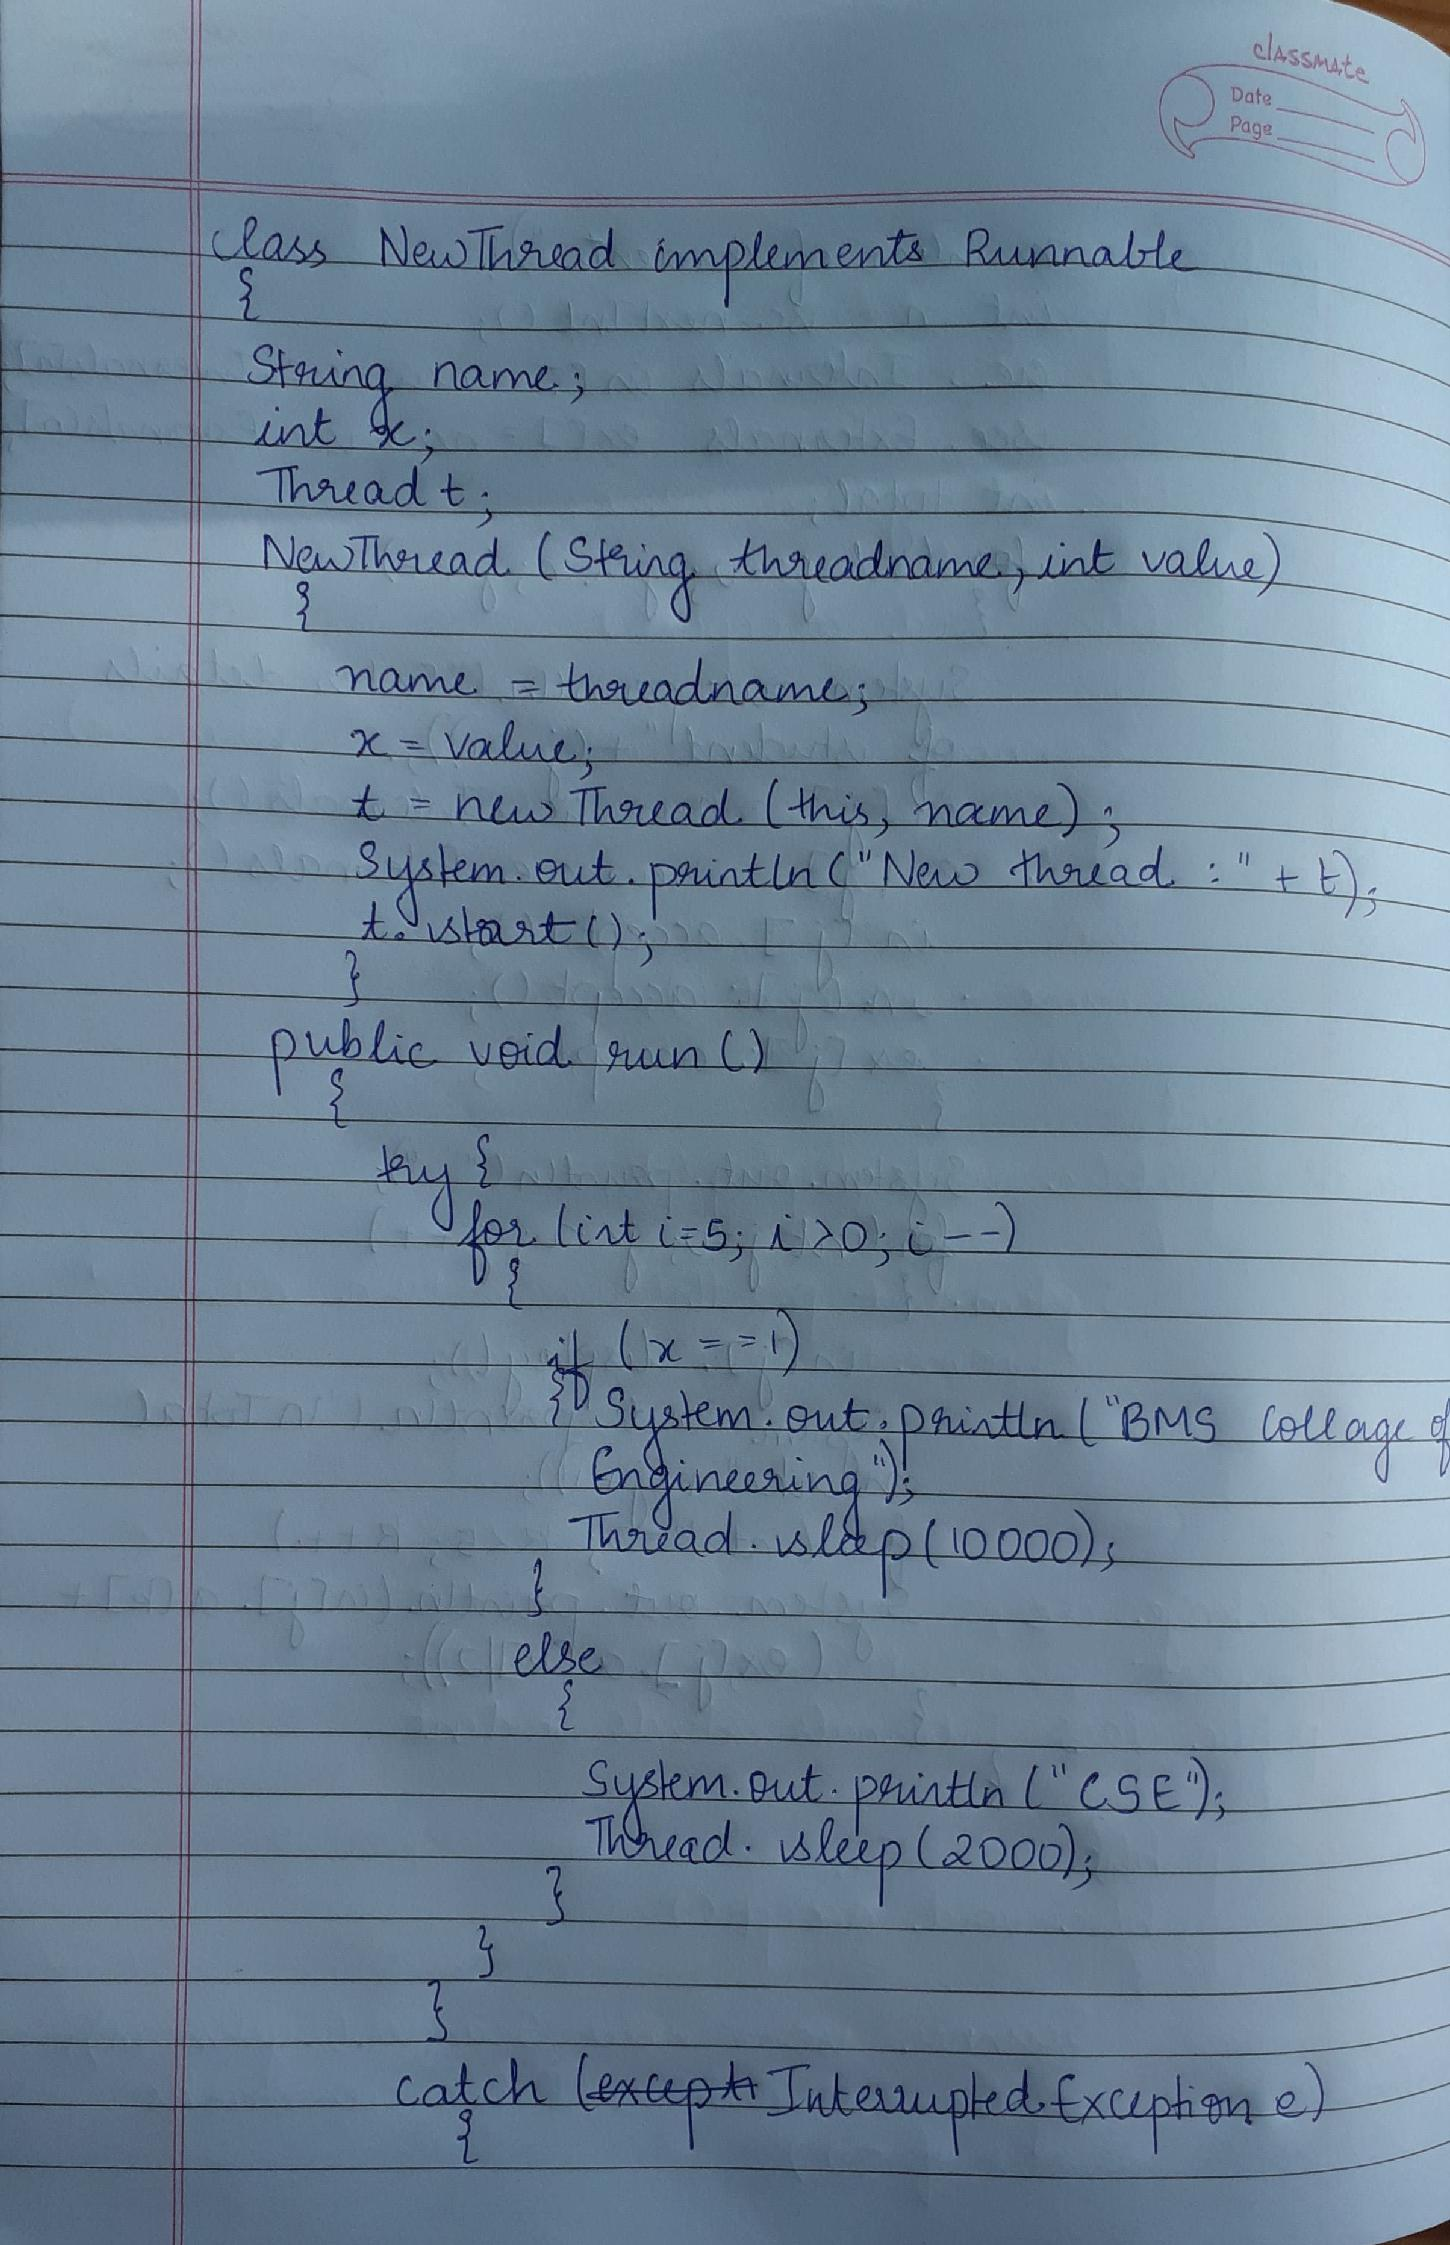 classmate
Date
Page
class NewThread implements Runnable
{
String name;
int x;
Thread t;
NewThread (String threadname, int value)
{
name = threadname;
x = value;
t = new Thread (this, name);
System.out.println ("New thread : " + t);
t.start();
}
public void run ()
{
try {
for (int i=5; i>0; i--)
{
if (x == 1)
{ System.out.println ("BMS Collage of
Engineering");
Thread.sleep(10000);
}
else
{
System.out.println ("CSE");
Thread.sleep(2000);
}
}
}
catch (InterruptedException e)
{